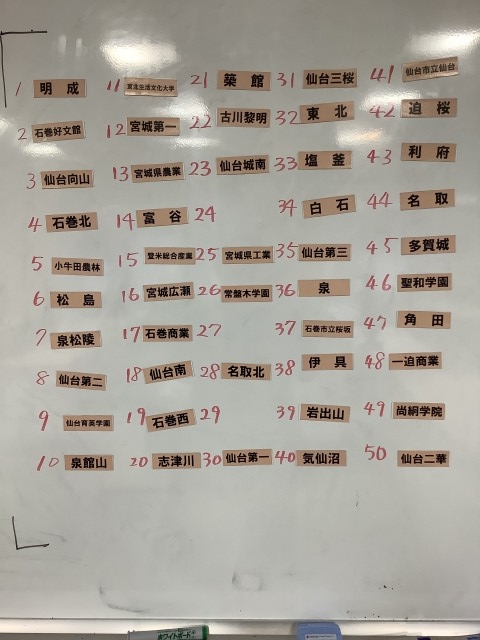 1 明成
2 石巻好文館
3 仙台向山
4 石巻北
5 小牛田農林
6 松島
7 泉松陵
8 仙台第二
9 仙台育英学園
10 泉館山
11 東北生活文化大学
12 宮城第一
13 宮城県農業
14 富谷
15 登米総合産業
16 宮城広瀬
17 石巻商業
18 仙台南
19 石巻西
20 志津川
21 築館
22 古川黎明
23 仙台城南
24
25 宮城県工業
26 常盤木学園
27
28 名取北
29
30 仙台第一
31 仙台三桜
32 東北
33 塩釜
34 白石
35 仙台第三
36 泉
37 石巻市立桜坂
38 伊具
39 岩出山
40 気仙沼
41 仙台市立仙台
42 迫桜
43 利府
44 名取
45 多賀城
46 聖和学園
47 角田
48 一迫商業
49 尚絅学院
50 仙台二華
ホワイトボード